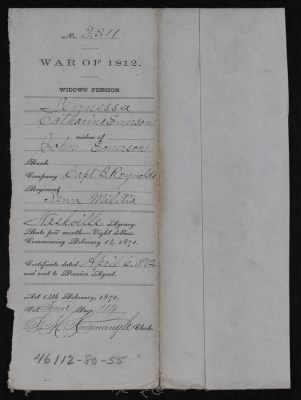 No. 2311
WAR OF 1812.
WIDOWS' PENSION.
Tennessee
Catharine Emerson
widow of
John Emerson
Rank
Company Capt B. Reynolds
Regiment
Tenn Militia
Nashville Agency.
Rate per month—Eight dollars.
Commencing February 14, 1871.
Certificate dated April 6, 1872
and sent to Pension Agent.
Act 14th February, 1871.
Vol. Page 114
Clerk.
46112-80-55